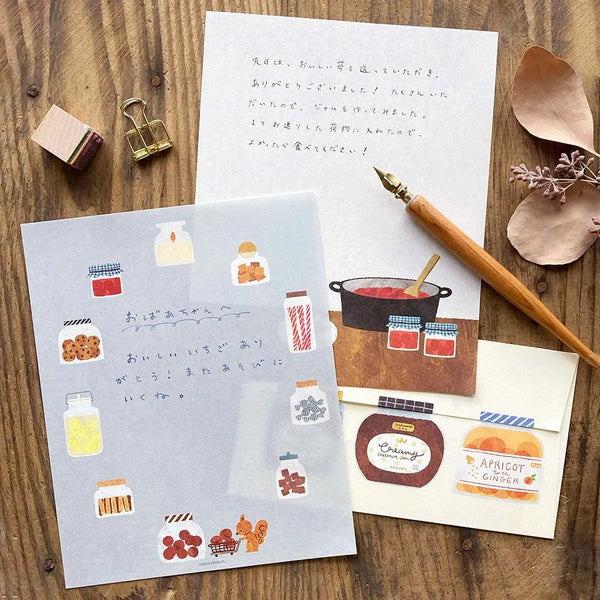 先日は、おいしい苺を送っていただき、
ありがとうございました！たくさんいた
だいたので、ジャムを作ってみました。
1つお送りした荷物に入れたので、
よかったら食べてください！
おばあちゃんへ
おいしいいちごあり
がとう！またあそびに
いくね。
Creamy
APRICOT
GINGER